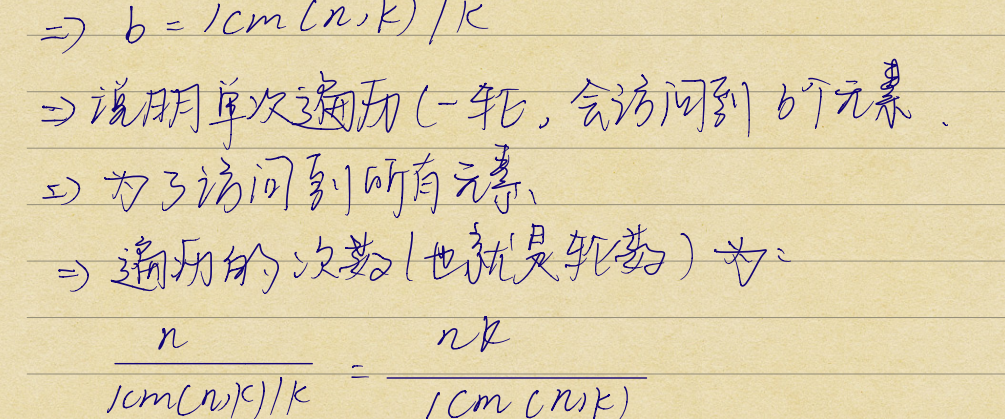 ⇒ b = lcm(n,k)/k
⇒ 说明单次遍历(一轮,会访问到 b个元素.
⇒ 为了访问到所有元素、
⇒ 遍历的次数(也就是轮数)为:
n/(lcm(n,k)/k) = nk/lcm(n,k)